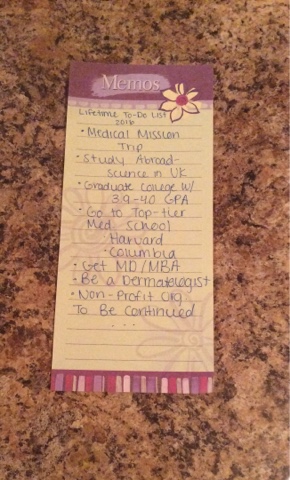 Memos
Lifetime To-Do List
2018
• Medical Mission
Trip
• Study Abroad-
Science in UK
• Graduate College W/
3.9-4.0 GPA
• Go to Top-tier
Med School
Harvard
• Columbia
• Get MD/MBA
• Be a Dermatologist
• Non-Profit Org
To Be Continued
. . . .